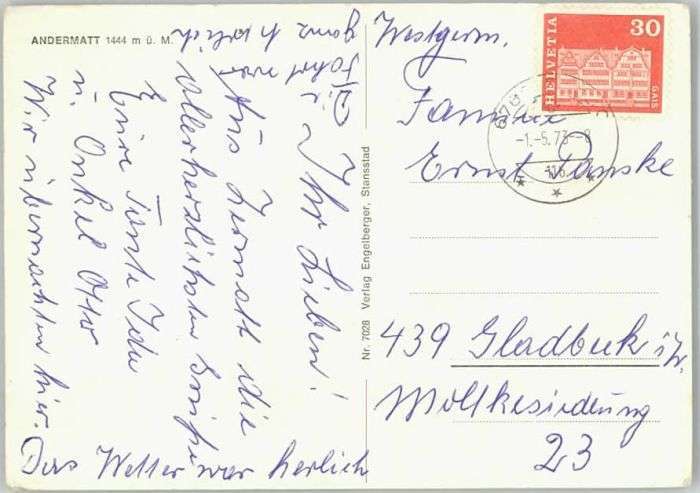 ANDERMATT 1444 m ü. M.
Ihr Lieben!
Aus Zermatt die
allerherzlichsten Grüße
Eure Tante Ida
u. Onkel Otto
Wir übernachten hier.
Das Wetter war herlich
Die Fahrt war
ganz herlich
Nr. 7028 Verlag Engelberger, Stansstad
HELVETIA
30
GAIS
-1.-5.73--8
Westgerm.
Familie
Ernst Janske
439 Gladbeck i.W.
Moltkesiedlung
23